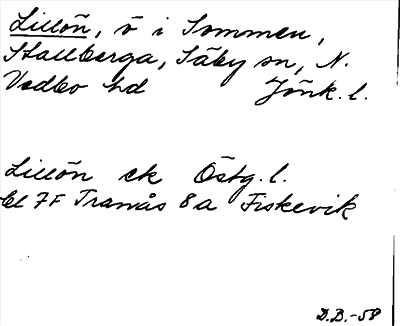 Lillön, ö i Sommen,
Stallberga, Säby sn, N.
Vedbo hd Jönk. l.
Lillön ek Östg. l.
bl 7F Tranås 8a Fiskevik
D.D.-58